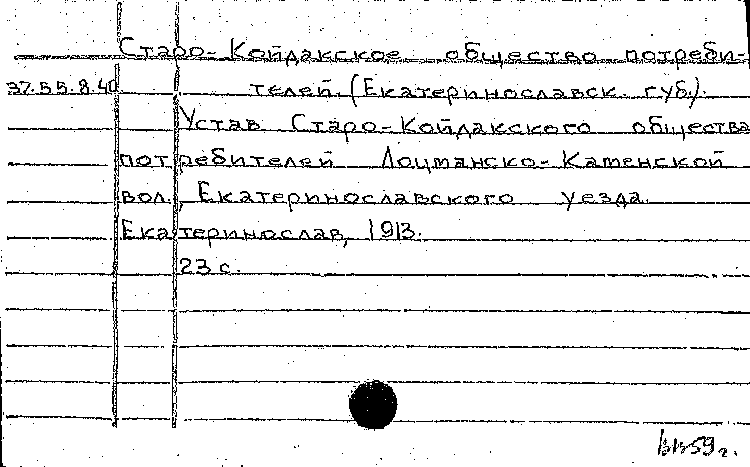 Старо-Койдакское общество потреби-
37.55.8.40 телей. (Екатеринославск. губ.).
Устав Старо-Койдакского общества
потребителей Лоцманско-Каменской
вол., Екатеринославского уезда.
Екатеринослав, 1913.
23 с.